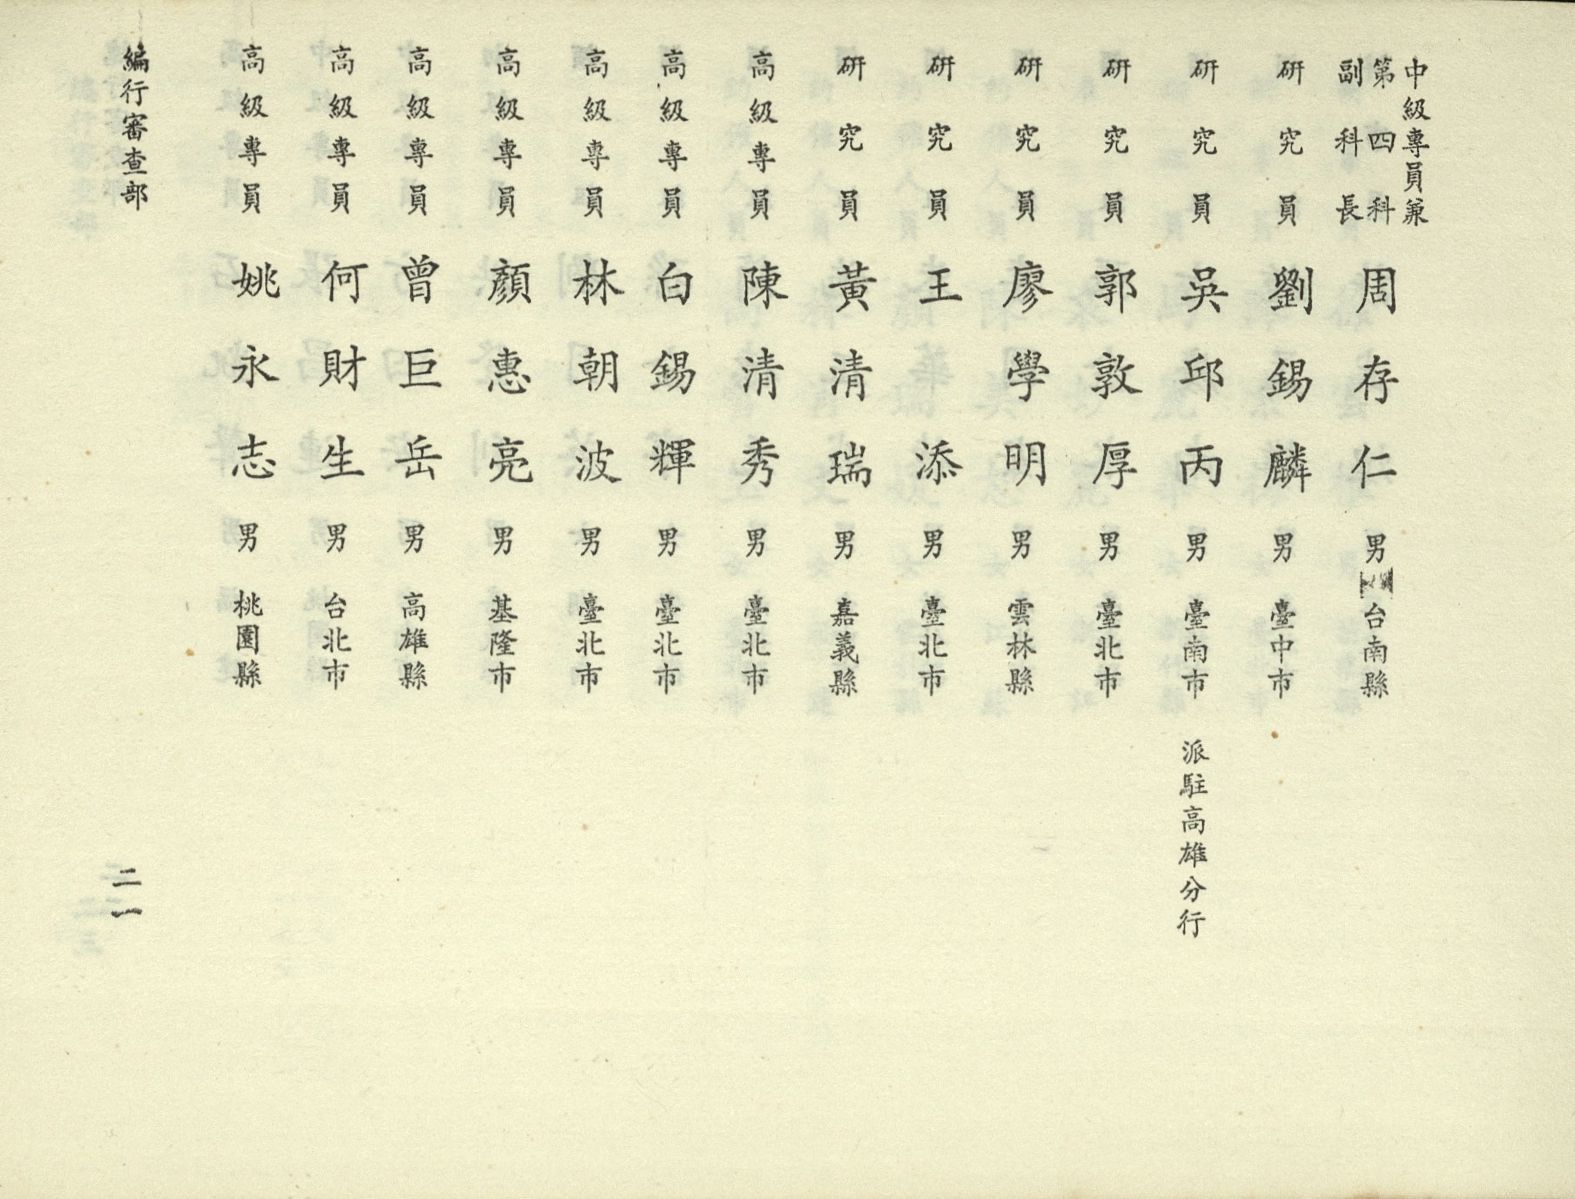 中級專員兼
第四科
副科長 周存仁 男 台南縣
研究員 劉錫麟 男 臺中市
研究員 吳邱丙 男 臺南市 派駐高雄分行
研究員 郭敦厚 男 臺北市
研究員 廖學明 男 雲林縣
研究員 王添 男 臺北市
研究員 黃清瑞 男 嘉義縣
高級專員 陳清秀 男 臺北市
高級專員 白錫輝 男 臺北市
高級專員 林朝波 男 臺北市
高級專員 顏惠亮 男 基隆市
高級專員 曾巨岳 男 高雄縣
高級專員 何財生 男 台北市
高級專員 姚永志 男 桃園縣
編行審查部
二一